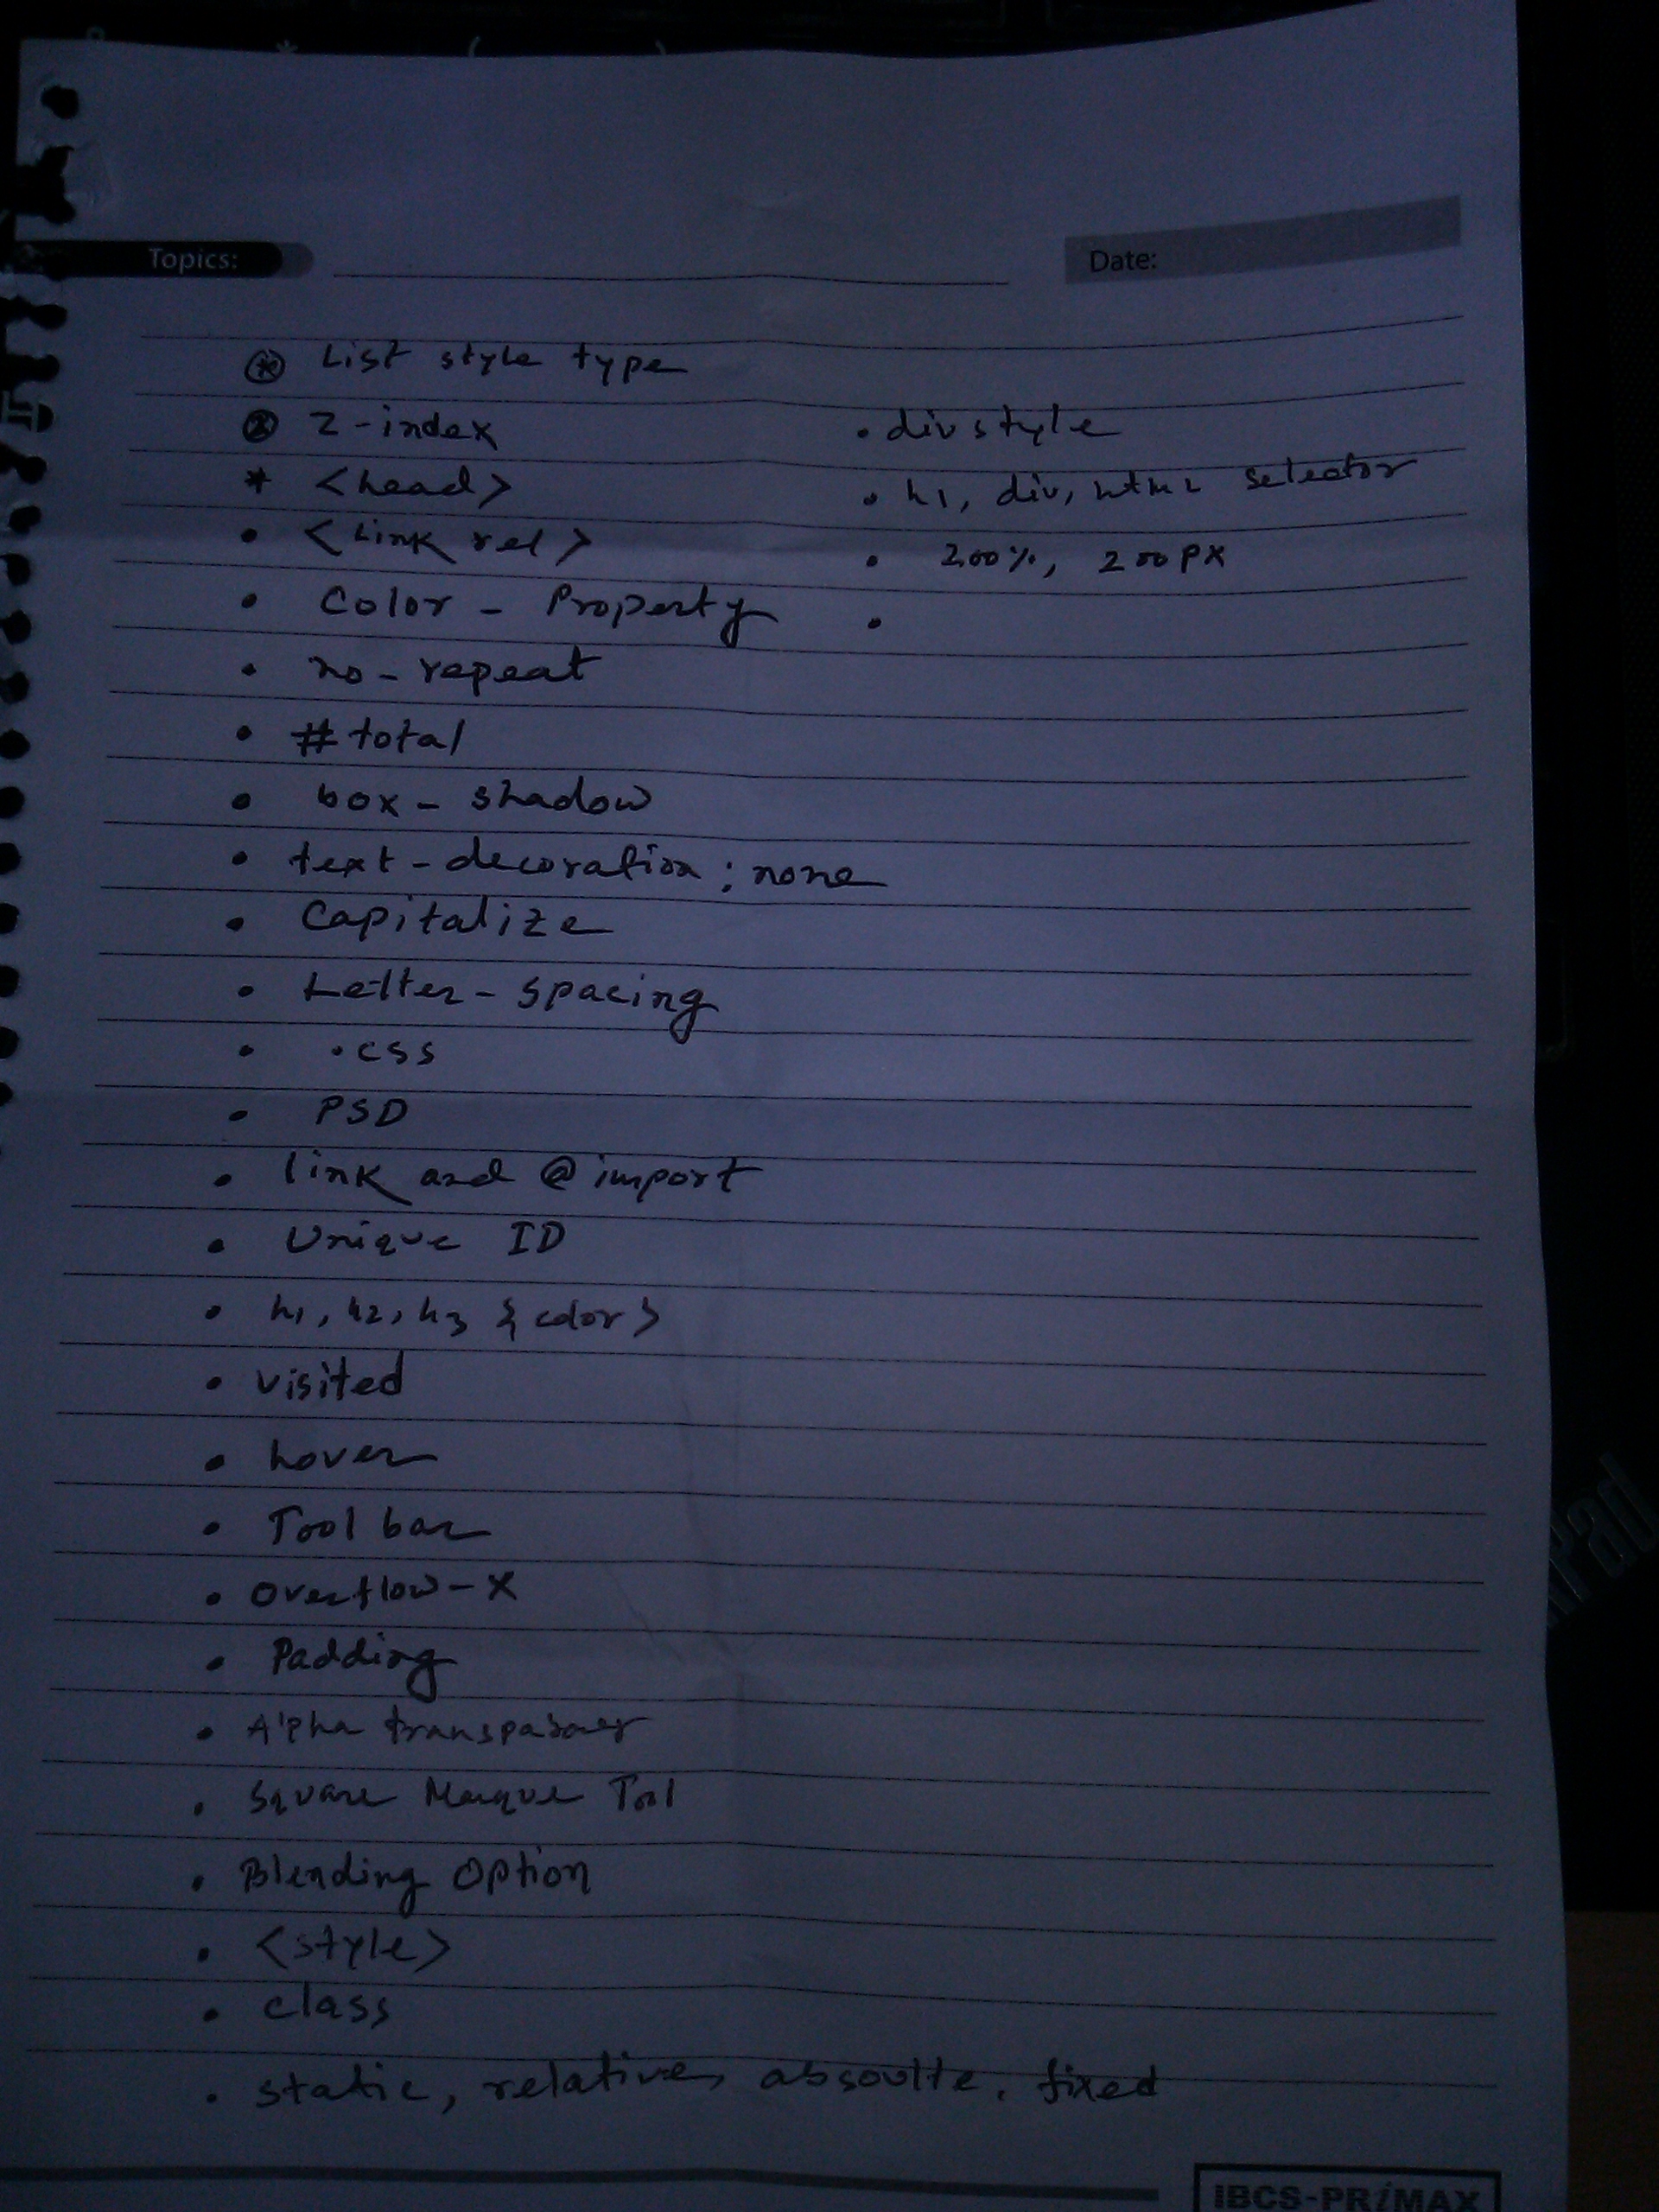 Topics:
Date:
⊛ List style type
⊛ Z-index
* <head>
• <Link rel>
• Color - Property
• no-repeat
• #total
• box-shadow
• text-decoration: none
• Capitalize
• Letter-spacing
• .css
• PSD
• link and @import
• Unique ID
• h1, h2, h3 {color}
• visited
• hover
• Tool bar
• Overflow-x
• Padding
• Alpha
• Square Marque Tool
• Blending Option
• <style>
• class
• static, relative, absoulte, fixed
• div style
• h1, div, html selector
• 200%, 200px
•
IBCS-PRiMAX